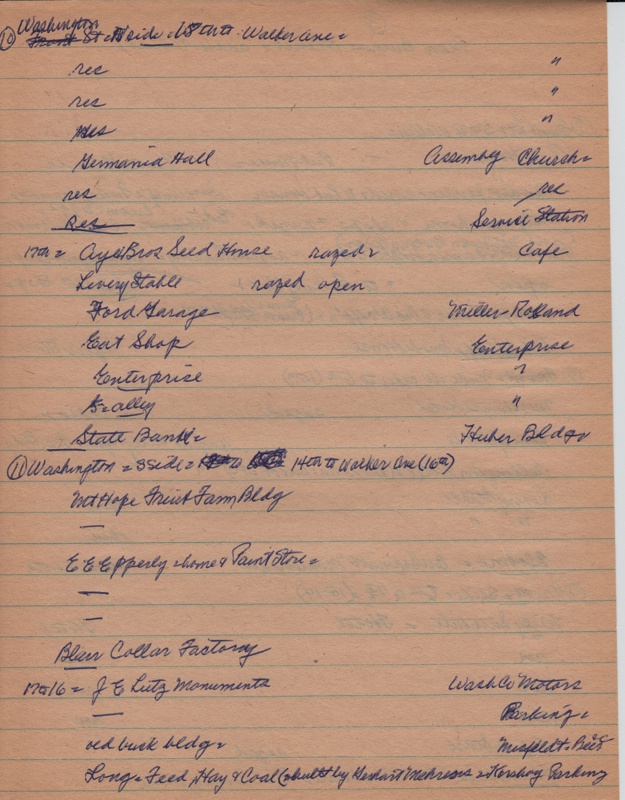 10 Washington St = N side = 18th to Walker Ave =
res "
res "
res "
Germania Hall Assembly Church =
res res
Res Service Station
17th = Aye Bros Seed House razed = Cafe
Livery Stable razed open
Ford Garage Miller-Rolland
Eat Shop Enterprise
Enterprise "
S = alley "
State Bank = Huber Bldg
11 Washington = S side = 14th to Walker Ave (16th)
Mt Hope Fruit Farm Bldg
—
E E Epperly = home & Paint Store =
—
—
Blair Collar Factory
17 to 16 = J E Lutz Monuments Wash Co Motors
— Parking =
old brick bldg = Misfeldt =
Long = Feed, Hay & Coal (built by Gerhart = Parking